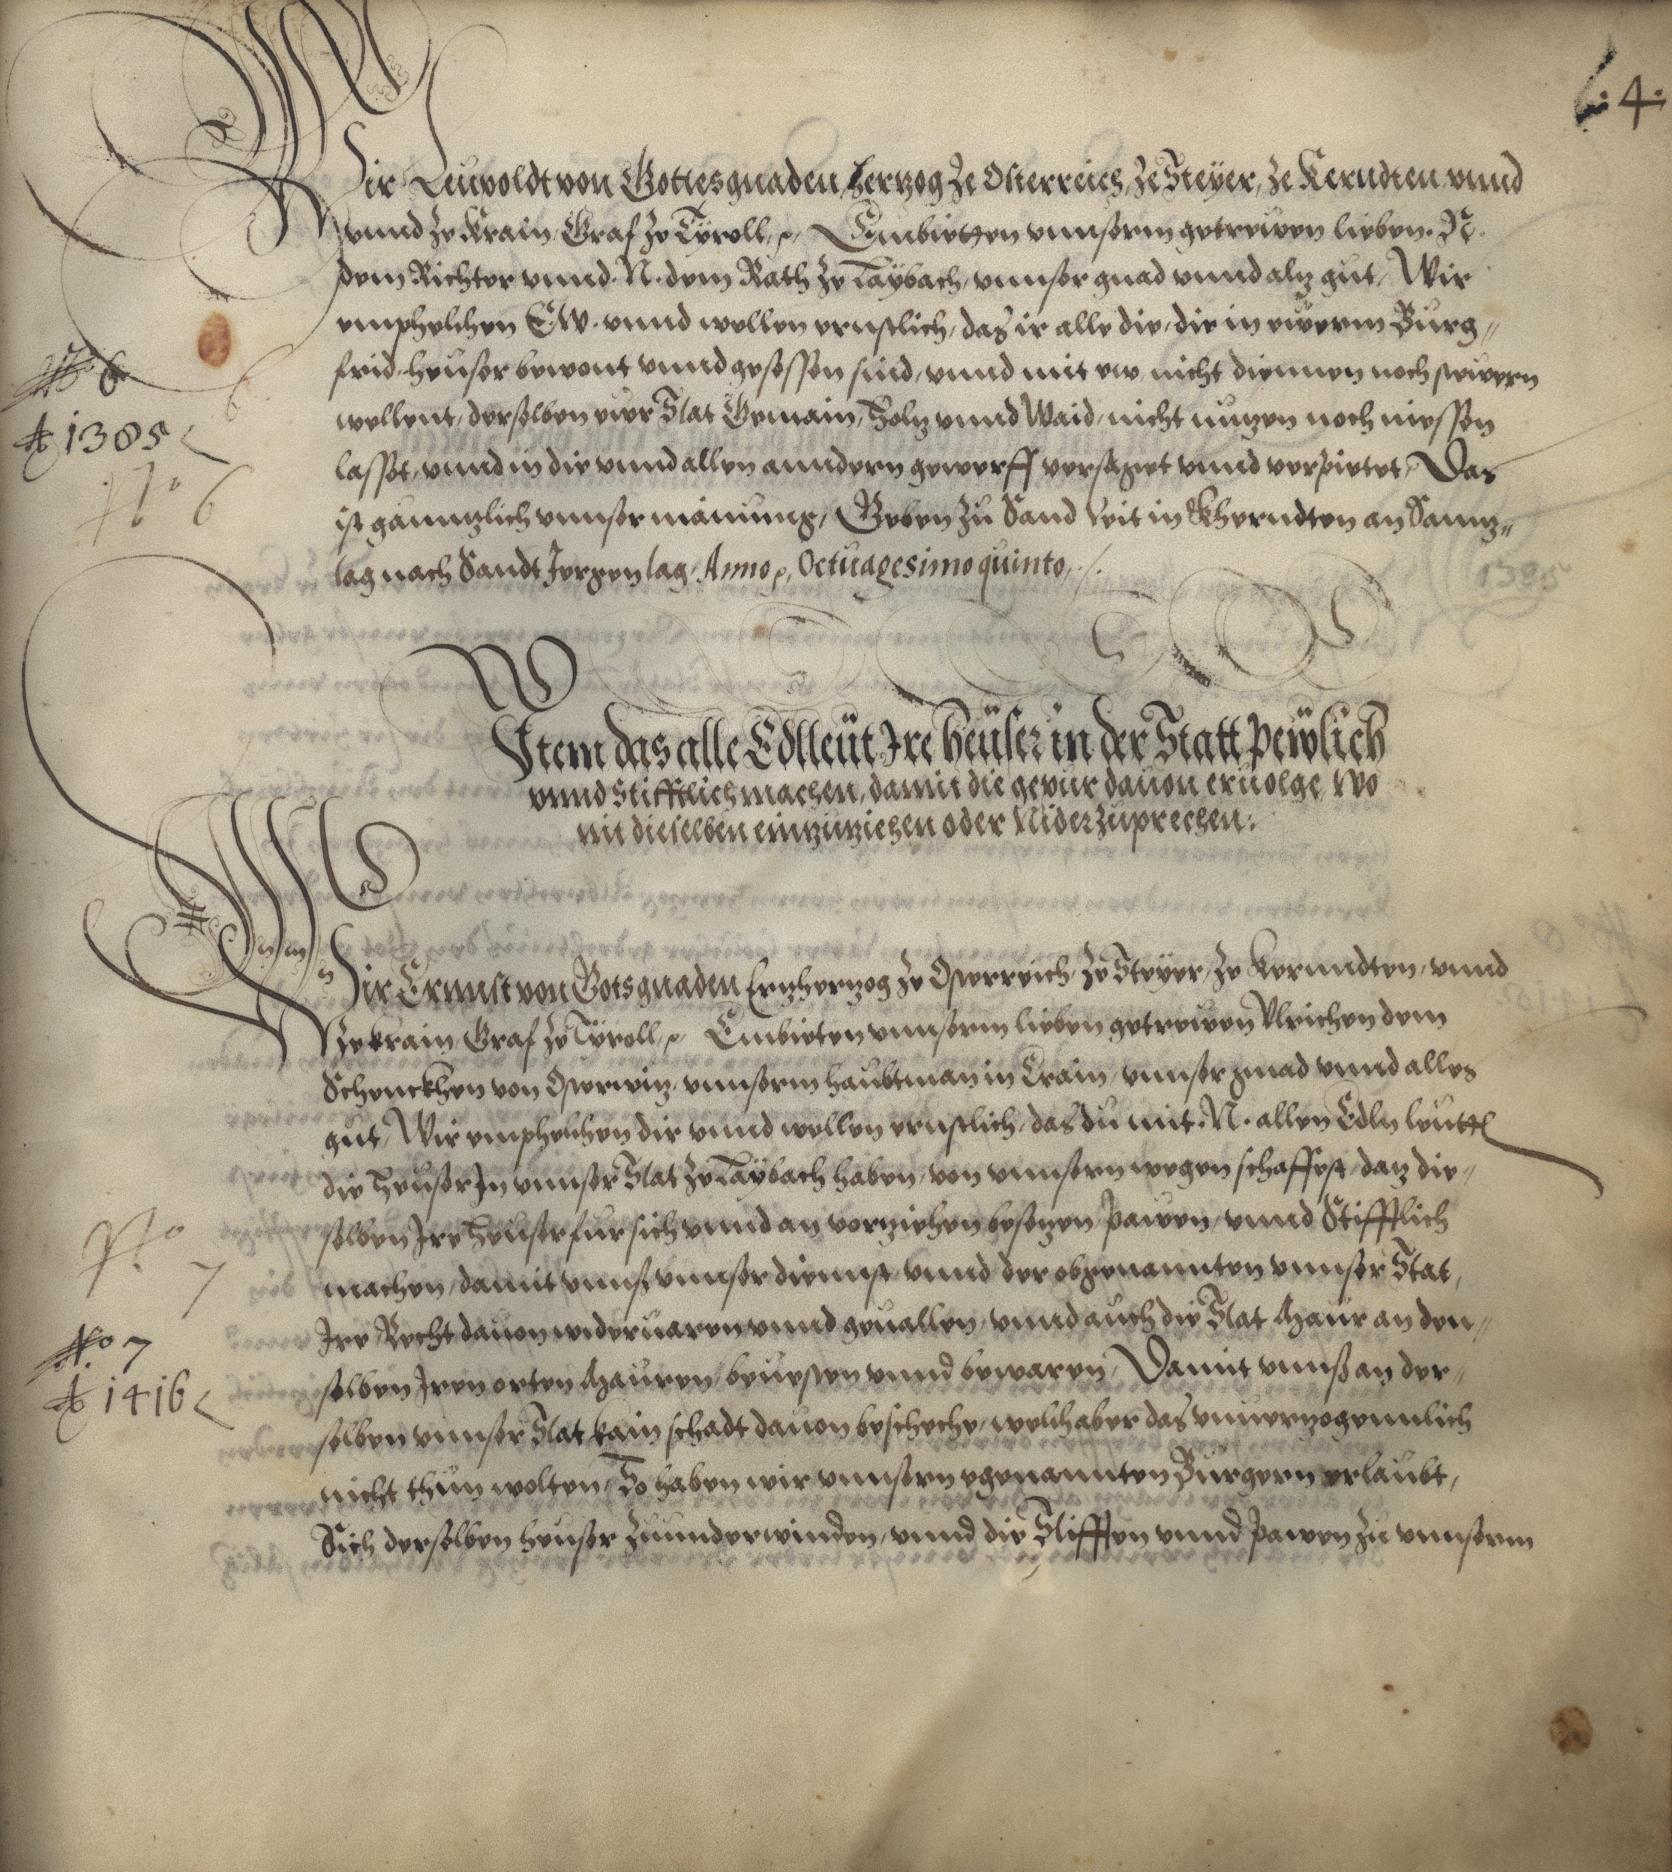 4.
Wir Leupoldt von Gottes gnaden, Herzog Ze Österreich, Ze Steÿer, Ze Kerndten vnnd
vnnd Ze Krain, Graf Ze Tÿroll, Embietten vnnserm getrewen lieben. N.
dem Richter vnnd. N. dem Rath Ze Laÿbach, vnnser gnad vnnd alz gut, Wir
emphelchen EW. vnnd wellen ernstlich, das ir alle die, die in ewerm Burg„
frid heuser bewont vnnd gesessen sind, vnnd mit ew nicht diennen noch stewern
wellent, derselben ewr Stat Gemain, Holz vnnd Waid, nicht nuzen noch niessen
lasset, vnnd in die vnnd allen anndern gewerff versaget vnnd verpietet, Das
ist gänntzlich vnnser mainung, Geben Zu Sand Veit in Kherndten an Sambz„
tag nach Sandt Jorgen tag. Anno, Octuagesimo quinto,
No 6
A 1385
No 6
6
1385
Item das alle Edlleüt Ire heüser in der Statt pewlich
vnnd Stifftlich machen, damit die gepur dauon eruolge, wo
nit dieselben einzuziehen oder Niderzuprechen.
Wir Ernnst von Gots gnaden Erzherzog Ze Osterreich, Ze Steÿer, Ze Kernndten, vnnd
Ze krain, Graf Ze Tÿroll, Embieten vnnserm lieben getrewen Vlrichen dem
Schenckhen von Osterwiz, vnnserm haubtman in Crain, vnnser gnad vnnd alles
gut, Wir emphelchen dir vnnd wellen ernstlich, das du mit. N. allen Edln leutten
die heuser In vnnser Stat Ze Laÿbach haben, von vnnsern wegen schaffest, daz die„
selben Ire heuser fur sich vnnd an verziehen besezen, pawen, vnnd Stifftlich
machen, damit vnns vnnser diennst, vnnd der obgenannten vnnser Stat,
Ire Recht dauon wideruaren vnnd geuallen, vnnd auch die Stat Maur an den„
selben Iren orten Mauren, beuesten vnnd bewaren, Damit vnns an der„
selben vnnser Stat kain schadt dauon bescheche, welch aber das vnuerzogennlich
nicht thun wolten, So haben wir vnnsern egenannten Burgern erlaubt,
Sich derselben heuser Zuunderwinden, vnnd die Stifften vnnd pawen Zu vnnserm
No
7
No 7
A 1416